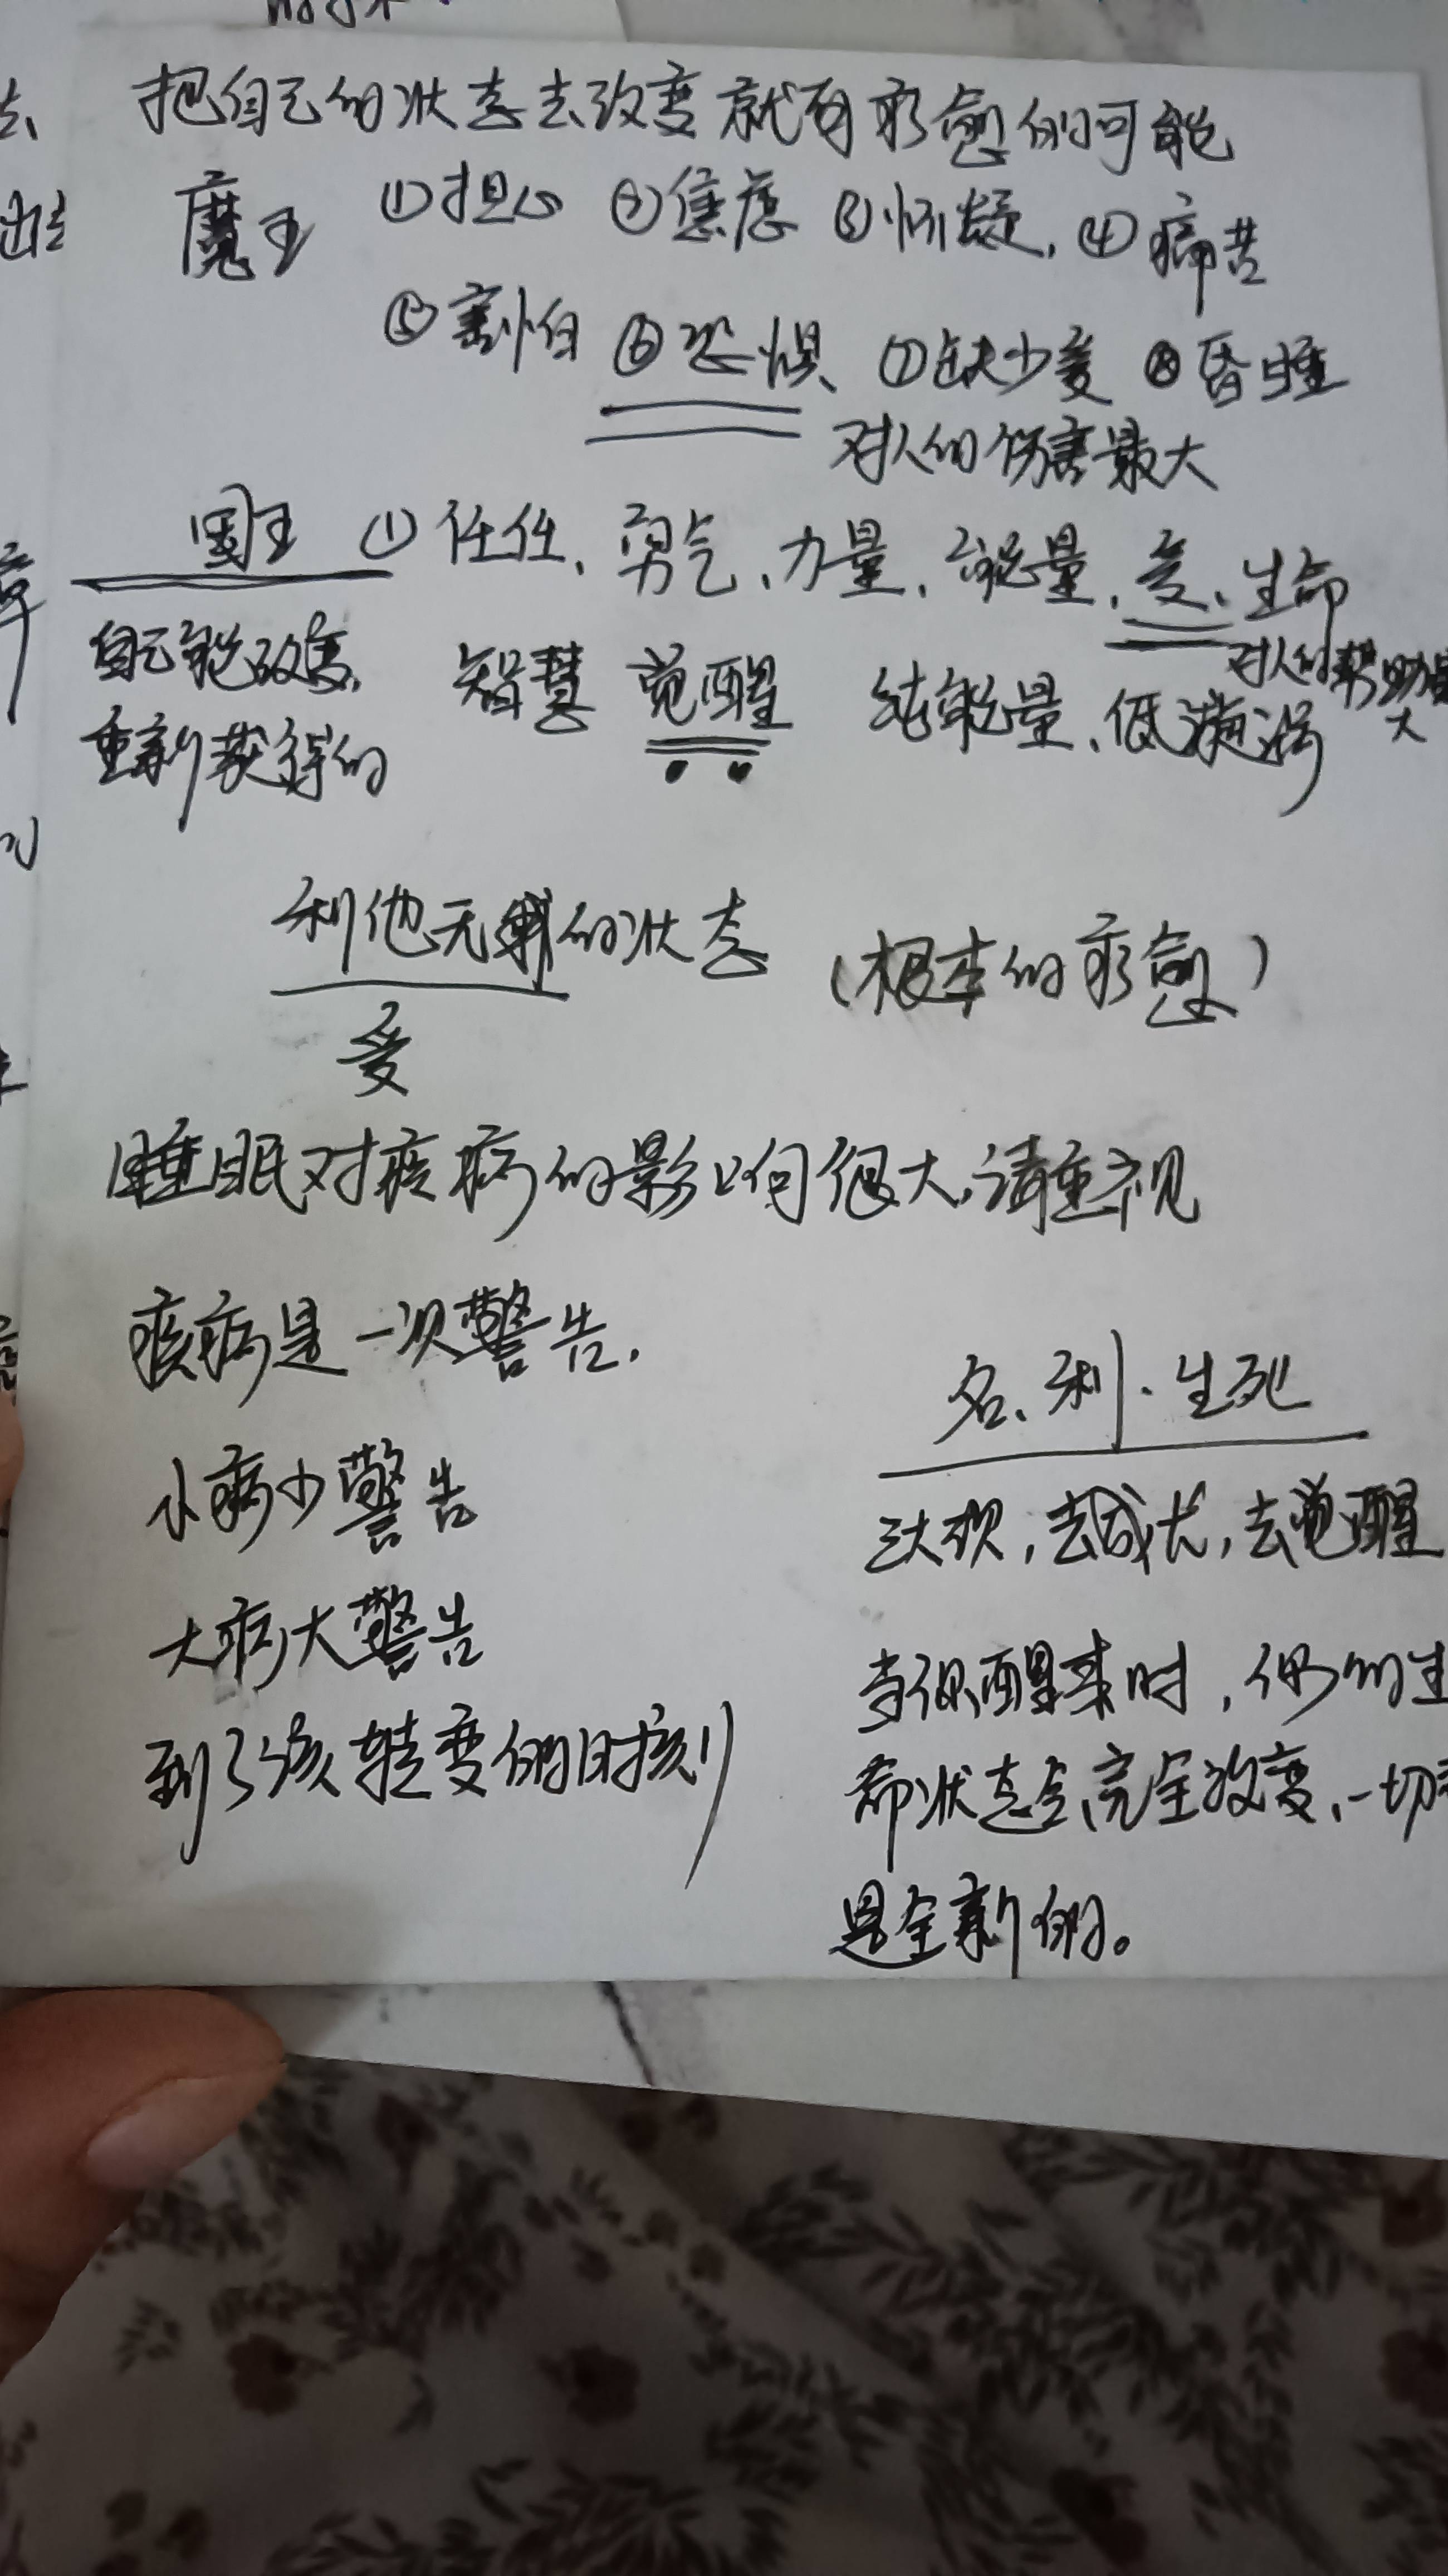 把自己的状态去改变就有疗愈的可能
魔王 ①担心 ②焦虑 ③怀疑, ④痛苦
⑤害怕 ⑥恐惧、⑦缺少爱 ⑧昏睡
对人的伤害最大
国王 ① 任、勇气、力量、能量、爱、生命
自己能改变, 智慧 觉醒 纯能量、低 对人的帮助
重新获得的 大
利他无我的状态 (根本的疗愈)
爱
睡眠对疾病的影响很大,请重视
疾病是一次警告.
小病小警告
大病大警告
到了该转变的时刻
名、利、生死
三大坎,去成长,去觉醒
当你醒来时,你的生
命状态会完全改变、一切
是全新的。